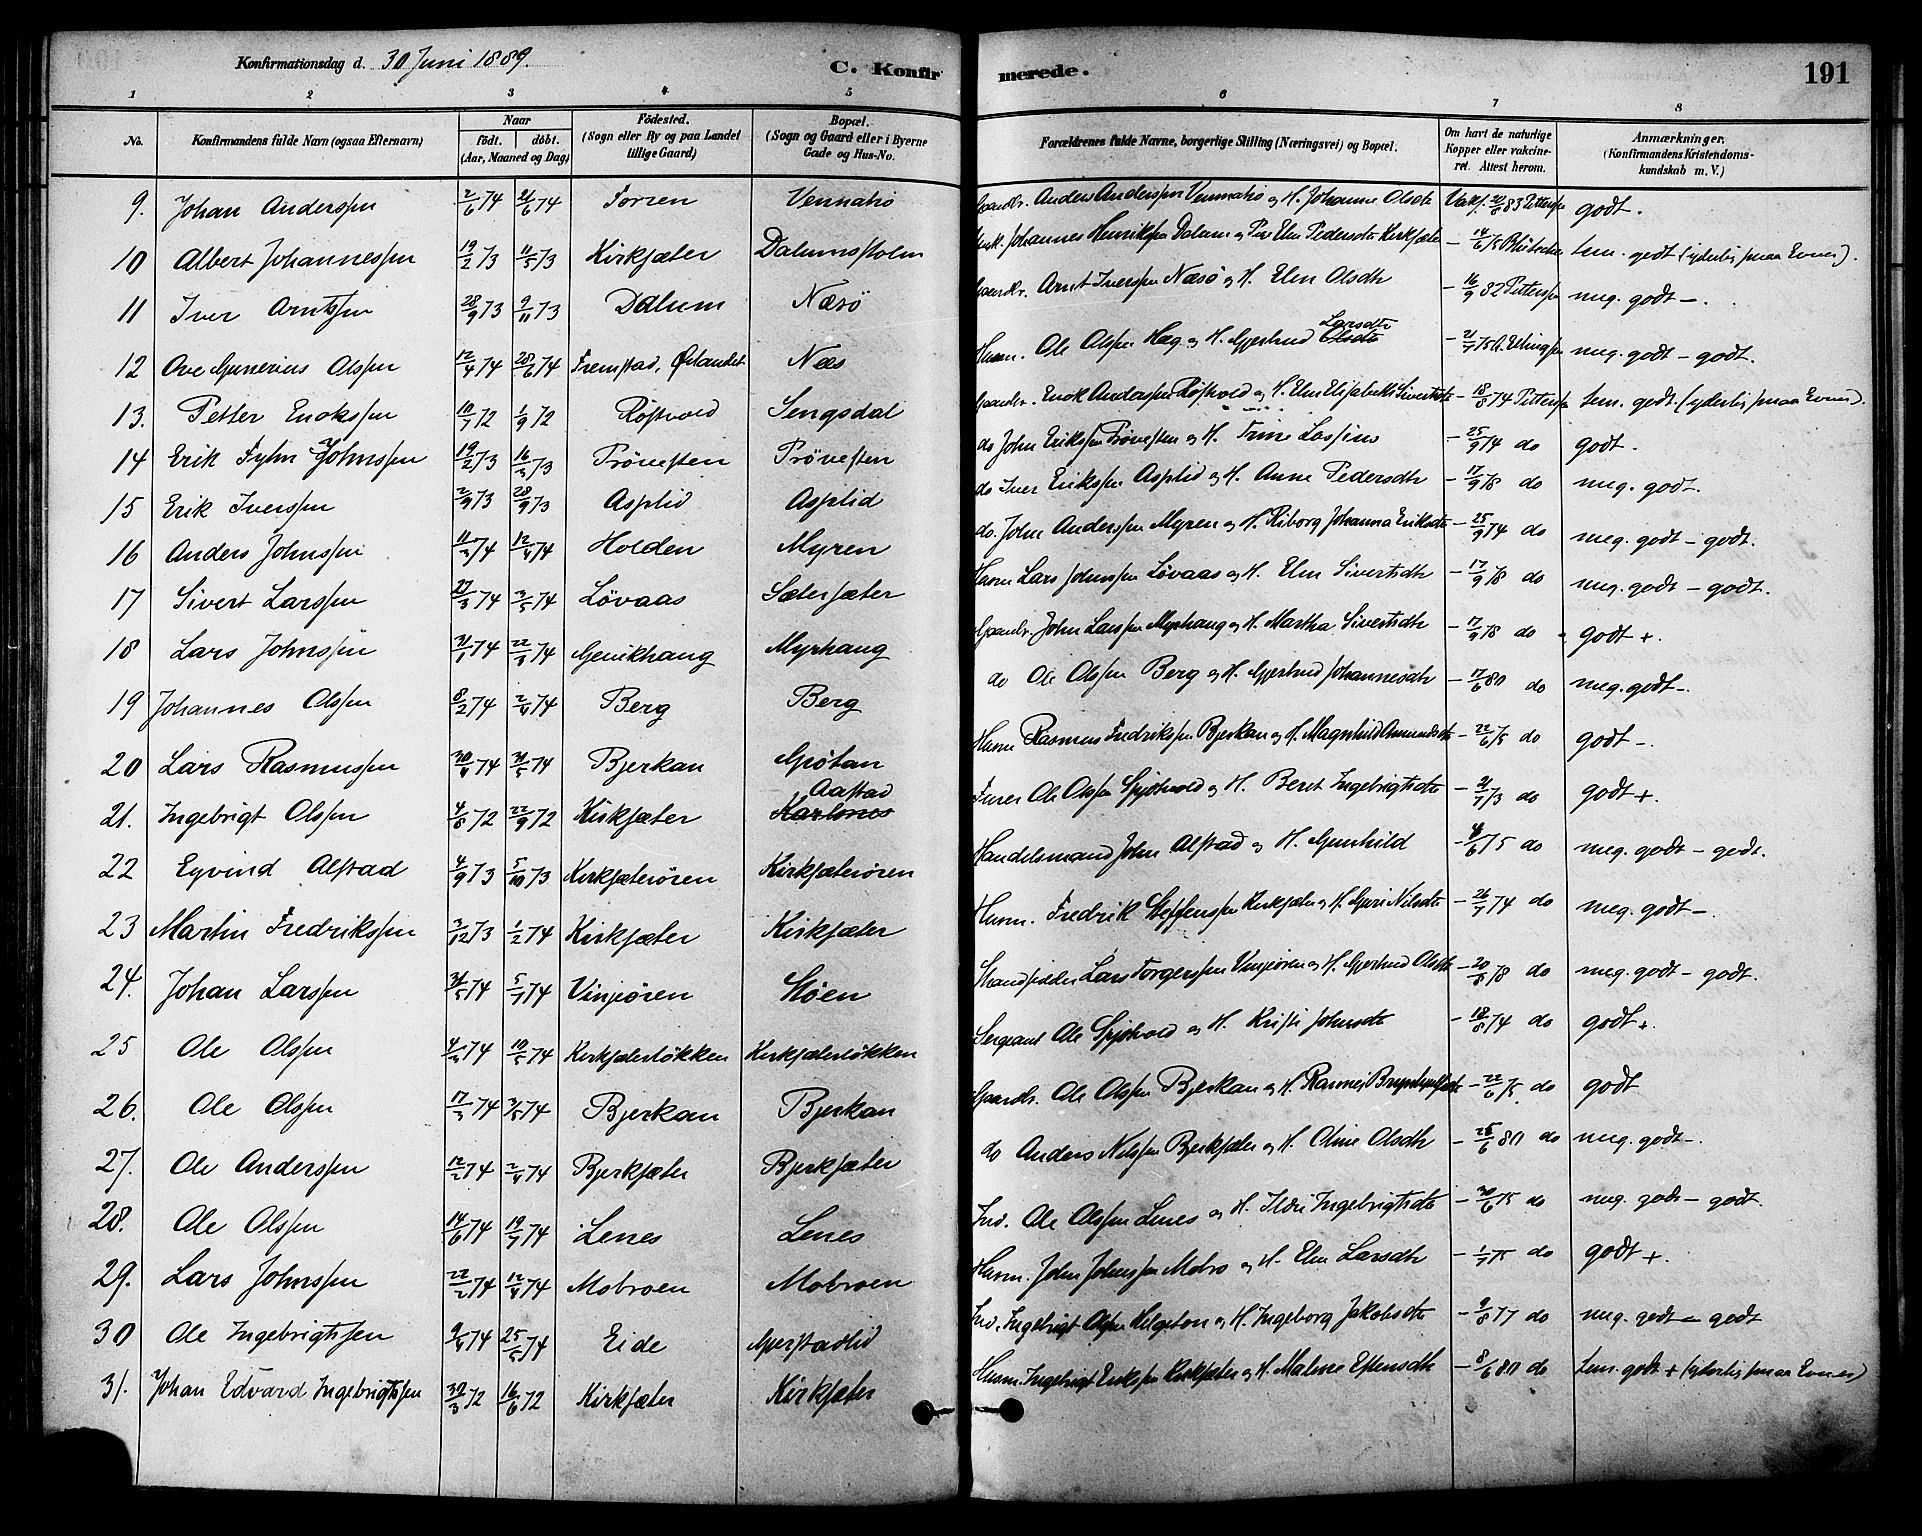 Konfirmationsdag d. 30 Juni 1889.
C. Konfirmerede.
191
1 2 3 4 5 6 7 8
No. Konfirmandens fulde Navn (ogsaa Efternavn) Naar født. døbt. (Aar, Maaned og Dag) Födested. (Sogn eller By og paa Landet tillige Gaard) Bopæl. (Sogn og Gaard eller i Byerne Gade og Hus-No. Forældrenes fulde Navne, borgerlige Stilling (Næringsvei) og Bopæl. Om havt de naturlige Kopper eller vakcineret. Attest herom. Anmærkninger. (Konfirmandens Kristendomskundskab m. V.)
9. Johan Anderssen 2/6 74 21/6 74 Torsen Vennatrø Gaardbr. Anders Anderssen Vennatrø og H. Johanne Olsdtr godt.
10 Albert Johannessen 19/2 73 11/5 73 Kirksæter Dalumsholm Johannes Henrikssen Dalum og Elen Pedersdtr Kirksæter tem. godt (yderlig smaa Evner).
11 Iver Arntssen 28/9 73 9/11 73 Dalum Næsø Gaardbr. Arnt Iverssen Næsø og H. Elen Olsdtr - 16/9 82 Petterssen meg. godt -.
12 Ove Gunerius Olssen 12/4 74 28/6 74 Fremstad, Ørlandet Næs Husm. Ole Olssen Hæg og H. Gjertrud Olsdtr Larsdtr - 21/7 75 meg. godt - godt.
13. Petter Enokssen 10/7 72 1/9 72 Røstvold Sengsdal Gaardbr. Enok Anderssen Røstvold og H. Elen Elisabeth Sivertsdtr - 18/8 74 Petterssen tem. godt. (yderlig smaa Evner).
14 Erik Fylin Johnssen 19/2 73 16/3 73 Prövesten Prövesten do John Erikssen Prövesten og H. Trine - 25/9 74 do godt.
15 Erik Iverssen 2/9 73 28/9 73 Asplid Asplid do Iver Erikssen Asplid og H. Anne Pedersdtr - 17/9 78 do meg. godt.
16 Anders Johnssen 11/3 74 12/4 74 Holden Myren do. John Anderssen Myren og H. Riborg Johanna Eriksdtr - 25/9 74 do meg. godt - godt.
17 Sivert Larssen 27/3 74 3/5 74 Løvaas Sætersæter Husm Lars Johnssen Løvaas og H. Elen Sivertsdtr - 17/9 78 do meg. godt - godt.
18 Lars Johnssen 74 74 Myrhaug Gaardbr. John Larssen Myrhaug og H. Martha Sivertsdtr - 17/9 78 do godt +.
19 Johannes Olssen 8/2 74 2/4 74 Berg Berg do Ole Olssen Berg og H. Gjertrud Johannesdtr - 17/6 80 do meg. godt -.
20 Lars Rasmussen 30/4 74 31/5 74 Bjerkan Husm Rasmus Fredrikssen Bjerkan og H. Magnhild Amundsdtr - 22/6 75 do godt -.
21. Ingebrigt Olssen 4/8 72 22/9 72 Kirksæter Karlsnes Aastad Ole Olssen og H. Beret Ingebrigtsdtr - 21/7 73 do godt +.
22 Eyvind Alstad 4/9 73 5/10 73 Kirksæterören Kirksæterören Handelsmand John Alstad og H. Gunhild - 4/6 75 do meg. godt - godt.
23 Martin Fredrikssen 3/12 73 1/2 74 Kirksæter Kirksæter Husm. Fredrik Steffenssen Kirksæter og H. Guri Nilsdtr - 26/7 74 do meg. godt -.
24. Johan Larssen 31/5 74 5/7 74 Vinjeören Støen Strandsidder Lars Torgerssen Vinjeören og H. Gjertrud Olsdtr - 20/8 78 do meg. godt - godt.
25 Ole Olssen 4/3 74 10/5 74 Kirksæterløkken Kirksæterløkken Sergeant Ole og H. Kristi Johnsdtr - 18/8 74 do godt +.
26. Ole Olssen 17/3 74 3/5 74 Bjerkan Bjerkan Gaardbr. Ole Olssen Bjerkan og H. Rannei Brynhulfsdtr - 22/6 75. do godt
27. Ole Anderssen 12/2 74 2/4 74 Bjerksæter Bjerksæter do Anders Nilssen Bjerksæter og H. Oline Olsdtr - 25/6 80 do meg. godt -.
28. Ole Olssen 14/6 74 19/7 74 Lenes Lenes Ind. Ole Olssen Lenes og H. Ildri Ingebrigtsdtr - 30/6 75 do meg. godt - godt.
29. Lars Johnssen 22/2 74 12/4 74 Mobroen Mobroen Husm. John Johnssen Mobro og H. Elen Larsdtr - 1/7 75 do godt +.
30 Ole Ingebrigtssen 9/4 74 25/5 74 Eide Gjerstadlid Ind. Ingebrigt Olssen Helgeton og H. Ingeborg Jakobsdtr - 9/8 77 do meg. godt - godt
31. Johan Edvard Ingebrigtssen 30/3 72 16/6 72 Kirksæter Kirksæter Husm. Ingebrigt Erikssen Kirksæter og H. Malene Estensdtr - 8/6 80 do tem. godt + (yderlig smaa Evner)